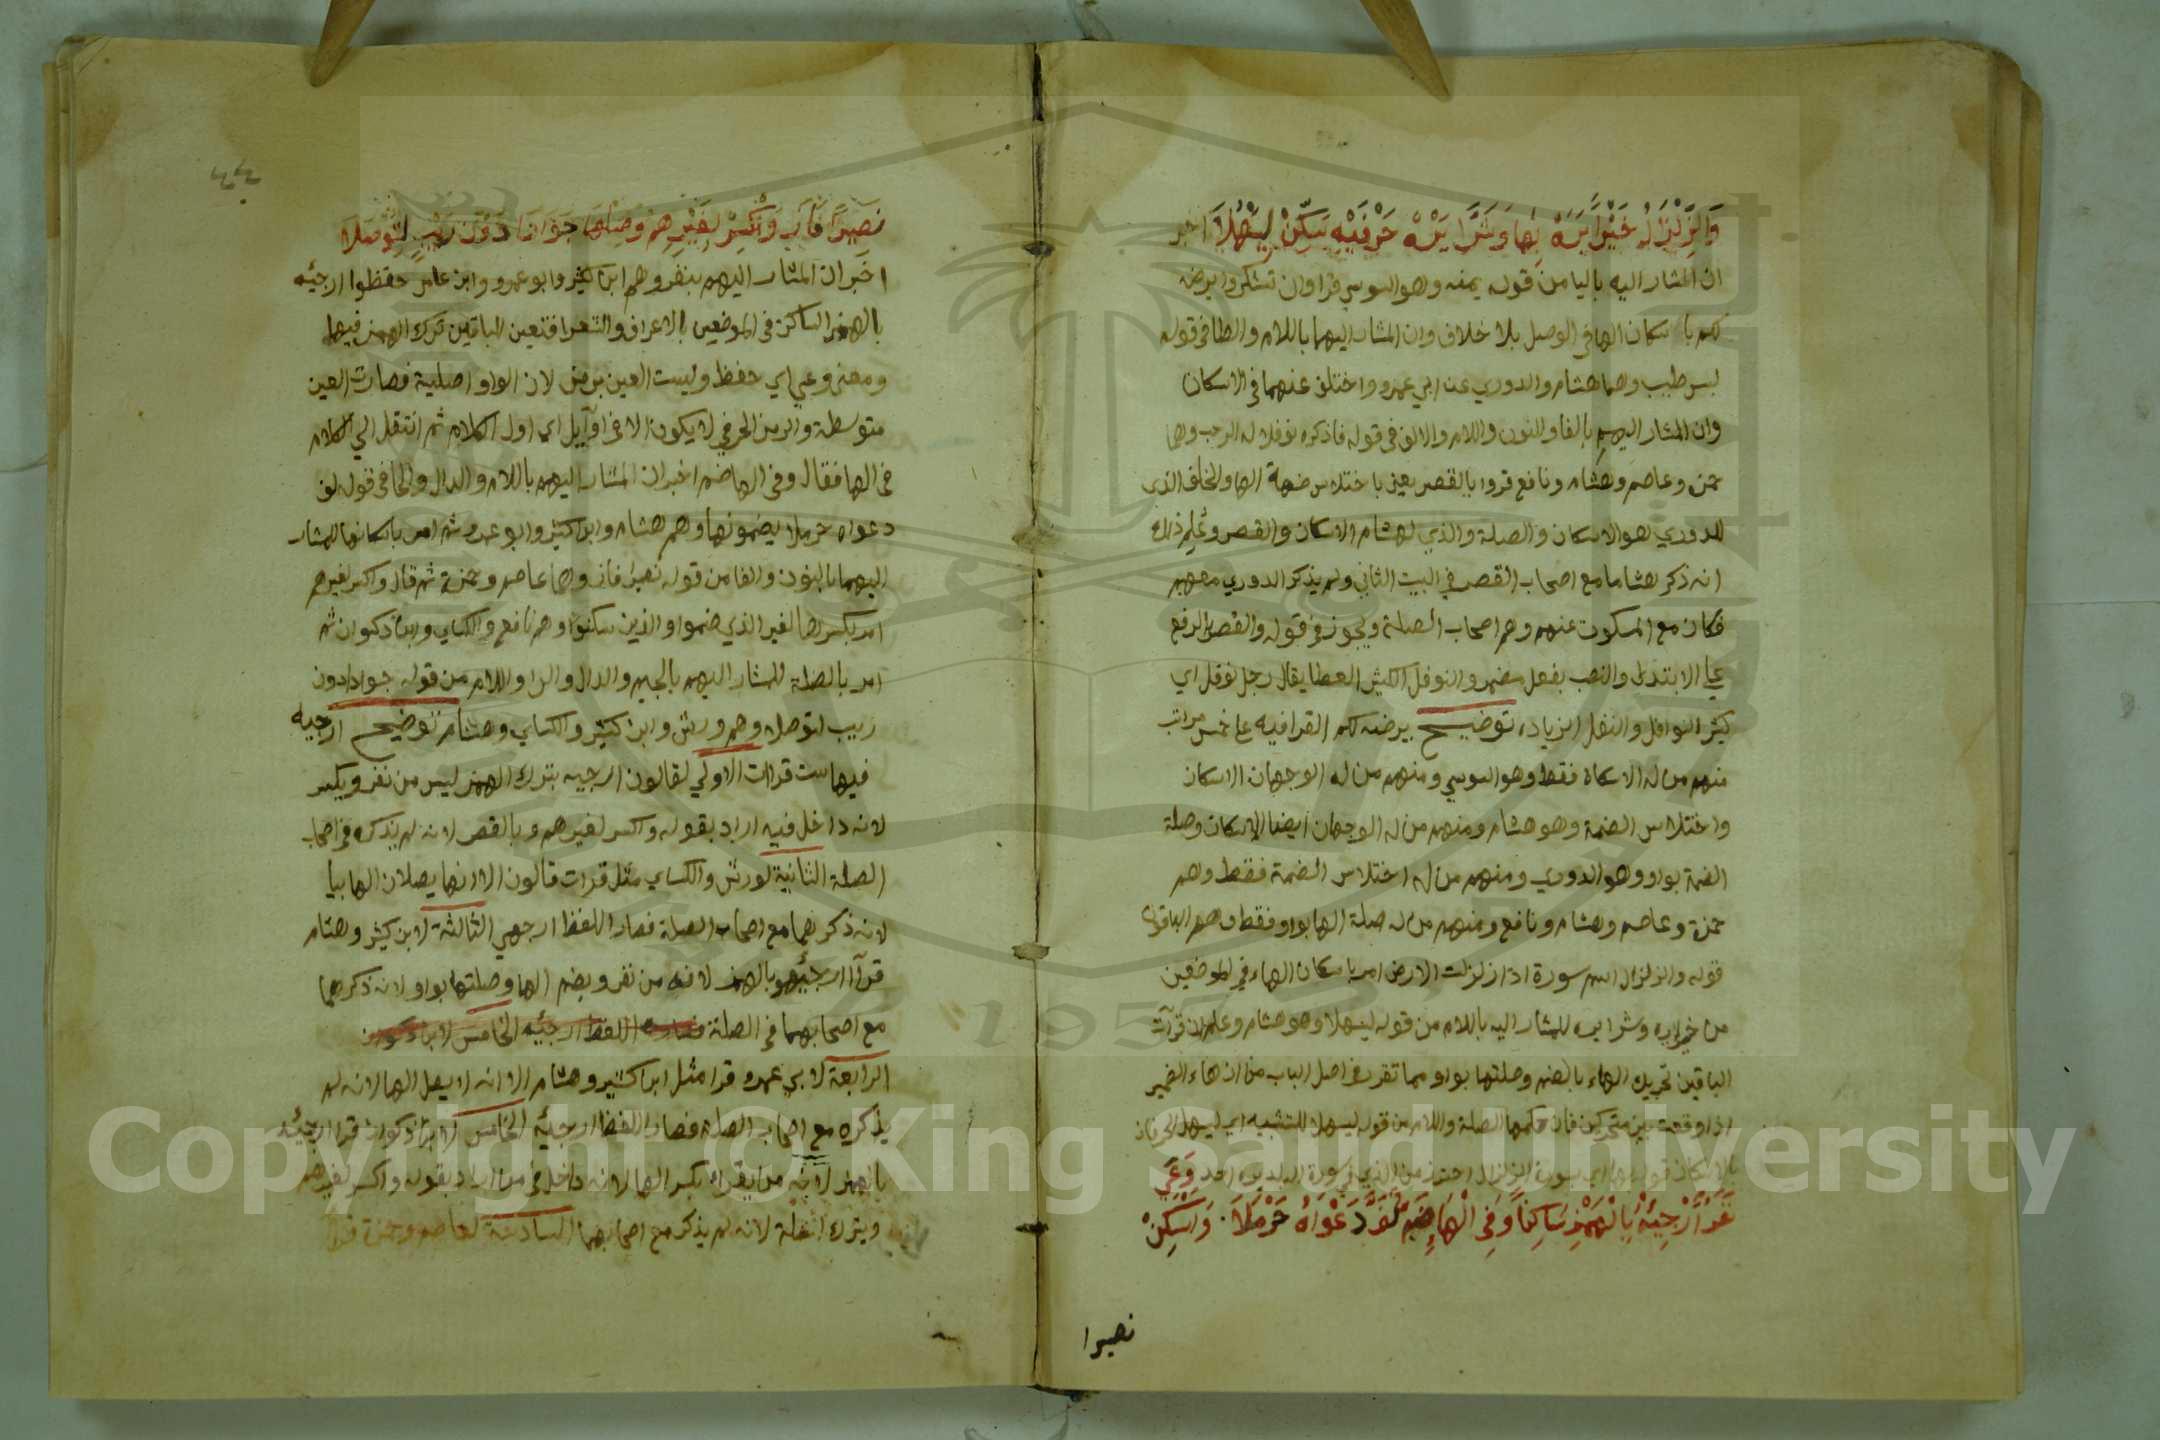 وَالزِّلْزَالُ خَيْرًا يَرَهْ بِهَا وَشَرًّا يَرَهْ حَرْفَيْهِ سَكِّنْ لِيَسْهُلَا اخبر
ان المشار اليه باليا من قوله يمنه وهو السوسي قرا وان تشكروا يرضه
لكم باسكان الها في الوصل بلا خلاف وان المشار اليهما باللام والطا في قوله
لبس طيب وهما هشام والدوري عن ابي عمرو واختلف عنهما في الاسكان
وان المشار اليهم بالفا والنون واللام والالف في قوله فاذكره نوفلا له الرحب وهما
حمزة وعاصم وهشام ونافع قروا بالقصر يعني باختلاس ضمة الها والخلف الذي
للدوري هو الاسكان والصلة والذي لهشام الاسكان والقصر وعلم ذلك
انه ذكر هشاما مع اصحاب القصر في البيت الثاني ولم يذكر الدوري معهم
فكان مع المسكوت عنهم وهم اصحاب الصلة ويجوز في قوله والقصر الرفع
علي الابتدا والنصب بفعل مضمر والنوفل الكثير العطا يقال رجل نوفل اي
كثير النوافل والنفل الزيادة توضيح يرضه لكم القرا فيه علي خمس مراتب
منهم من له الاسكان فقط وهو السوسي ومنهم من له الوجهان الاسكان
واختلاس الضمة وهو هشام ومنهم من له الوجهان ايضا الاسكان وصلة
الضمة بواو وهو الدوري ومنهم من له اختلاس الضمة فقط وهم
حمزة وعاصم وهشام ونافع ومنهم من له صلة الها بواو فقط وهم الباقون
قوله والزلزال اسم سورة اذا زلزلت الارض امر باسكان الهاء في الموضعين
من خيرا يره وشرا يره للمشار اليه باللام من قوله ليسهلا وهو هشام وعلم ان قرآت
الباقين تحريك الهاء بالضم وصلتها بواو مما تقرر في اصل الباب من ان هاء الضمير
اذا وقعت بين متحركين فان حكمها الصلة واللام من قوله ليسهلا للتثنيه اي ليسهل الحرفان
بالاسكان قوله بها اي بسورة الزلزال احترز من الذي في سورة البلد يره احد وَعَى
نَفَرٌ أَرْجِئْهُ بِالْهَمْزِ سَاكِنًا وَفِي الْهَاءِ ضَمٌّ لَفَّ دَعْوَاهُ حَرْمَلَا . وَأَسْكِنْ
نصيرا
نَصِيرًا فَازَ وَاكْسِرْ لِغَيْرِهِمْ وَصِلْهَا جَوَادًا دُونَ رَيْبٍ لِتُوصَلَا
اخبر ان المشار اليهم بنفر وهم ابن كثير وابو عمرو وابن عامر حفظوا ارجئه
بالهمز الساكن في الموضعين بالاعراف والشعرا فتعين للباقين ترك الهمز فيهما
ومعني وعي اي حفظ وليست العين برمز لان الواو اصلية فصارت العين
متوسطة والرمز الحرفي لا يكون الا في اوآيل اي اول الكلام ثم انتقل الي الكلام
في الها فقال وفي الها ضم اخبر ان المشار اليهم باللام والدال والحا في قوله لف
دعواه حرملا يضمونها وهم هشام وابن كثير وابو عمرو ثم امر باسكانها للمشار
اليهما بالنون والفا من قوله نصيرا فاز وهما عاصم وحمزة ثم قال واكسر لغيرهم
امر بكسرها لغير الذي ضموا والذين سكنوا وهم نافع والكساي وابن ذكوان ثم
امر بالصلة للمشار اليهم بالجيم والدال والرا واللام من قوله جوادا دون
ريب لتوصلا وهم ورش وابن كثير والكساي وهشام توضيح ارجيه
فيها ست قراات الاولي لقالون ارجيه بترك الهمز ليس من نفر وبكسر
لانه داخل فيه اراد بقوله واكسر لغيرهم وبالقصر لانه لم يذكره في اصحاب
الصلة الثانية لورش والكساي مثل قرات قالون الا انهما يصلان الها بيا
لانه ذكرهما مع اصحاب الصلة فصار اللفظ ارجهي الثالثة لابن كثير وهشام
قرآ ارجئهو بالهمز لانه من نفر وبضم الها وصلتها بواو لانه ذكرهما
مع اصحابهما في الصلة فصار اللفظ ارجئه الخامس لابن ذكوان
الرابعة لابي عمرو قرا مثل ابن كثير وهشام الا انه لا يصل الها لانه لم
يذكره مع اصحاب الصلة فصار اللفظ ارجئه الخامس لابن ذكوان قرا ارجئه
بالهمز لانه من نفر بكسر الها لانه داخل في من اراد بقوله واكسر لغيرهم
وبترك الصلة لانه لم يذكر مع اصحابهما السادسة لعاصم وحمزة قرا